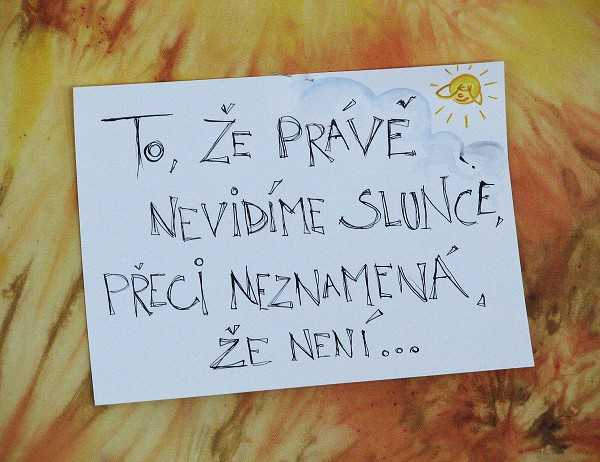 TO, ŽE PRÁVĚ
NEVIDÍME SLUNCE,
PŘECI NEZNAMENÁ,
ŽE NENÍ...